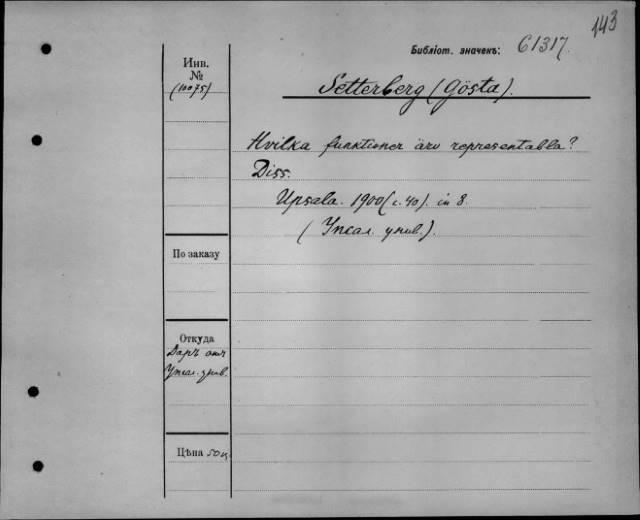 143
Библіот. значекъ: 61317.
Инв.
№
(10075)
Setterberg (Gösta).
Hvilka funktioner äro representabla?
Diss.
Upsala. 1900 (c. 40). in 8.
(Упсал. унив.).
По заказу
Откуда
Даръ отъ
Упсал. унив.
Цѣна 50 к.